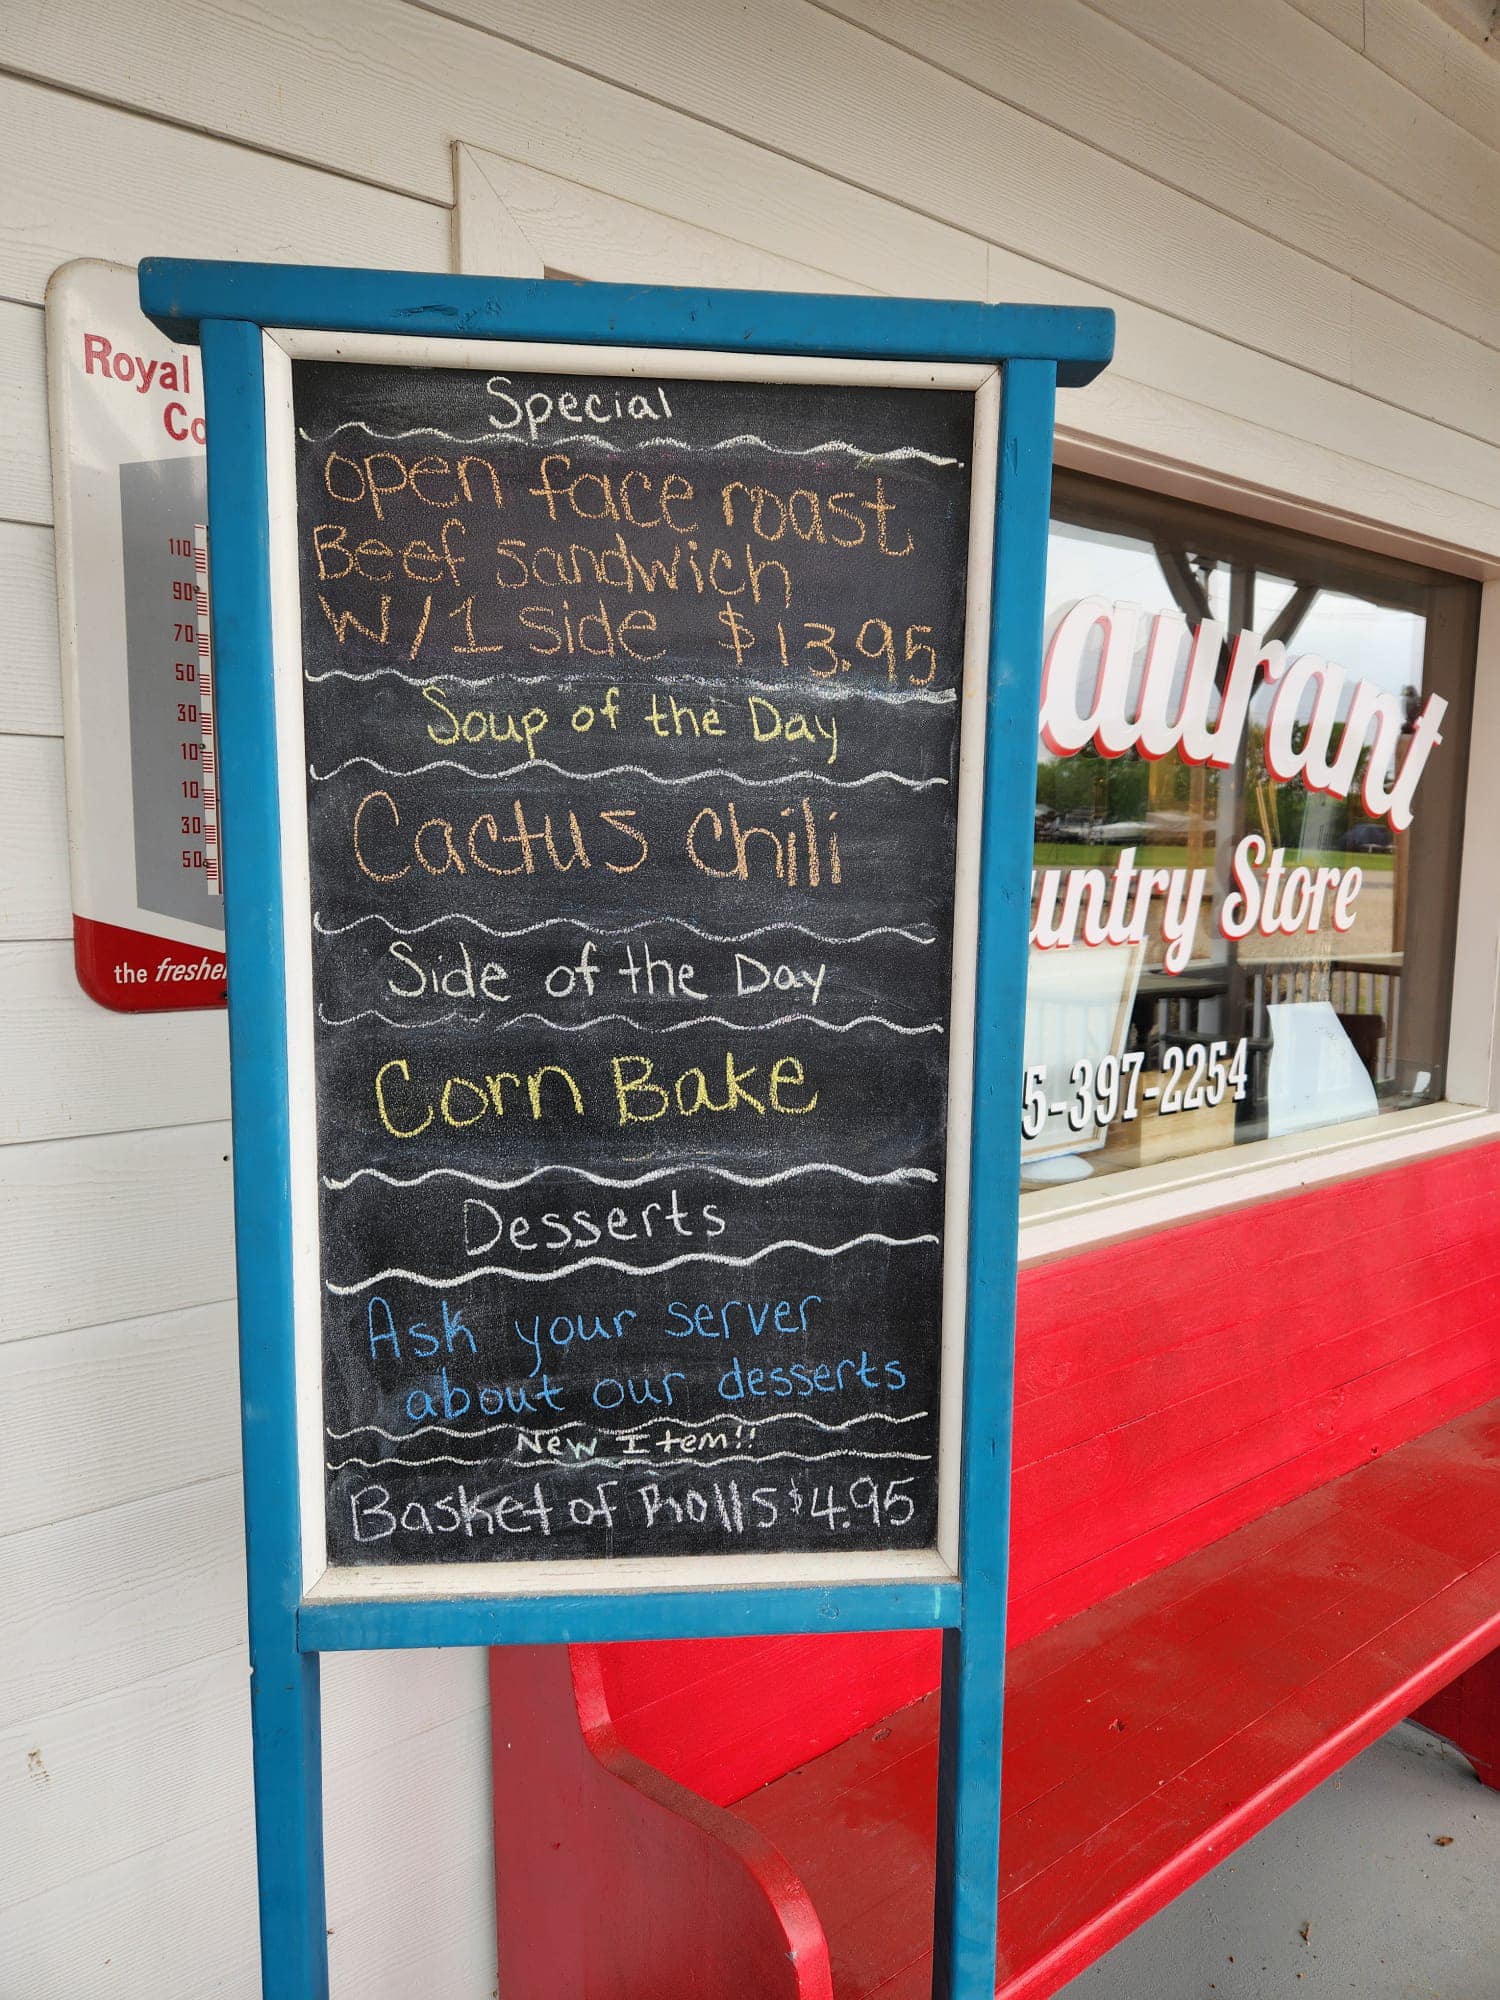 Special
open face roast
Beef sandwich
w/1 side $13.95
Soup of the Day
Cactus Chili
Side of the Day
Corn Bake
Desserts
Ask your server
about our desserts
New Item!!
Basket of Rolls $4.95
Royal
Co
110
90
70
50
30
10
10
30
50
the freshe
aurant
untry Store
5-397-2254